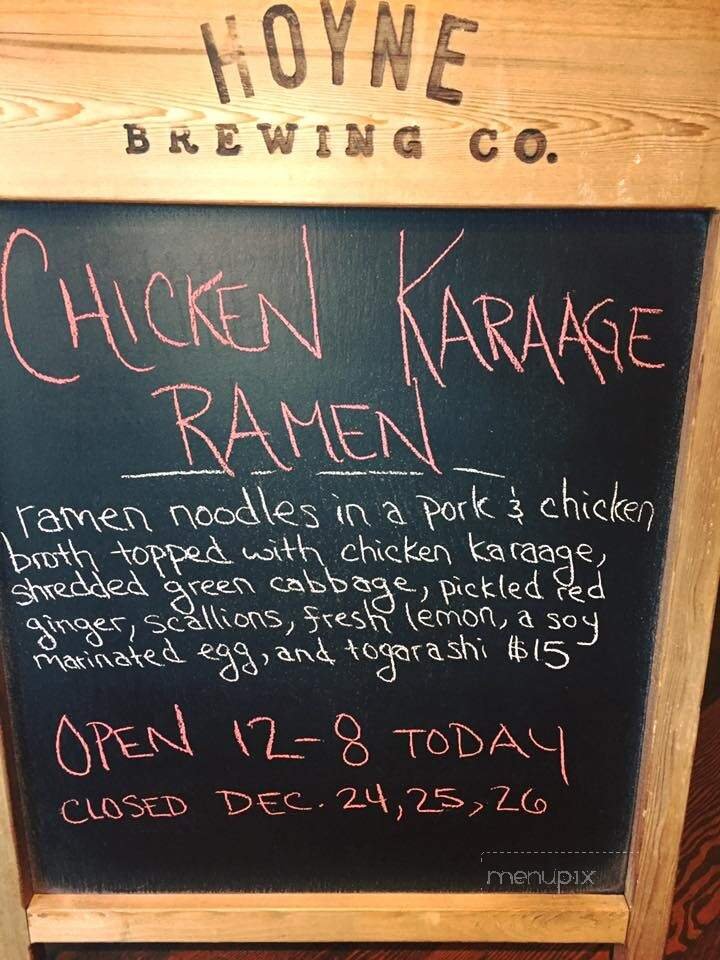 HOYNE
BREWING CO.
CHICKEN KARAAGE
RAMEN
ramen noodles in a pork & chicken
broth topped with chicken karaage,
shredded green cabbage, pickled red
ginger, scallions, fresh lemon, a soy
marinated egg, and togarashi $15
OPEN 12-8 TODAY
CLOSED DEC. 24, 25, 26
menupix